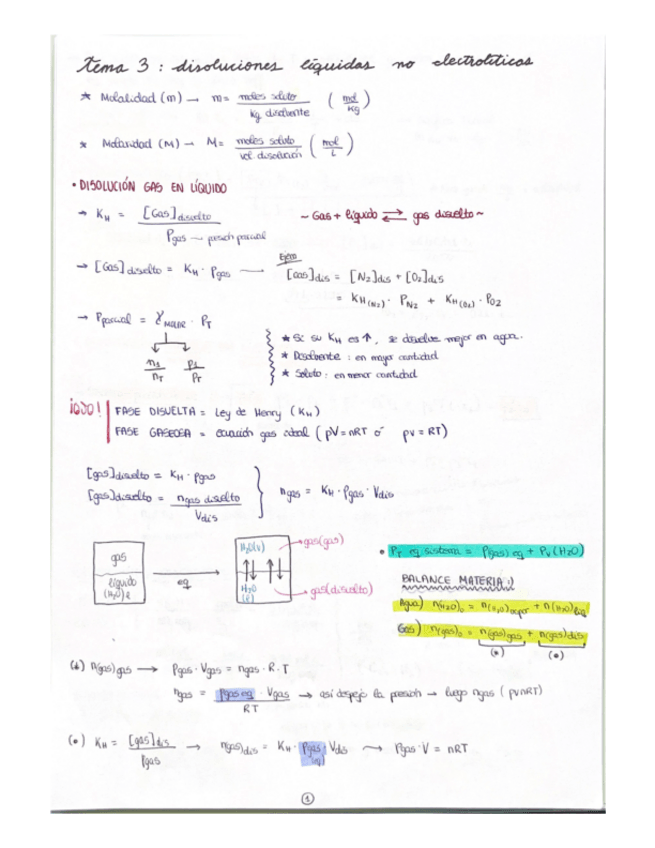 tema 3 : disoluciones líquidas no electrolíticas
* Molalidad (m) → m = moles soluto / kg disolvente ( mol / kg )
* Molaridad (M) → M = moles soluto / vol. disolución ( mol / L )
• DISOLUCIÓN GAS EN LÍQUIDO
→ KH = [Gas]disuelto / Pgas → presión parcial ~ Gas + líquido ⇄ gas disuelto ~
→ [Gas]disuelto = KH · Pgas — Ejem [Gas]dis = [N2]dis + [O2]dis
= KH(N2) · PN2 + KH(O2) · PO2
→ Pparcial = χmolar · PT
n1 / nT P1 / PT
* Si su KH es ↑, se disuelve mejor en agua.
* Disolvente : en mayor cantidad
* Soluto : en menor cantidad
¡OJO! FASE DISUELTA = Ley de Henry (KH)
FASE GASEOSA = ecuación gas ideal ( pV = nRT ó pv = RT)
[gas]disuelto = KH · Pgas
[gas]disuelto = ngas disuelto / Vdis
ngas = KH · Pgas · Vdis
gas
líquido
(H2O)l
eq
H2O(v)
H2O
(l)
gas(gas)
gas(disuelto)
• PT eq sistema = P(gas) eq + Pv (H2O)
BALANCE MATERIA :)
Agua) n(H2O)0 = n(H2O)vapor + n(H2O)líq
Gas) n(gas)0 = n(gas)gas + n(gas)dis
(*) (•)
(*) n(gas)gas → Pgas · Vgas = ngas · R · T
ngas = Pgas eq · Vgas / RT → así despejo la presión → luego ngas ( pV=nRT)
(•) KH = [gas]dis / Pgas → n(gas)dis = KH · Pgas eq · Vdis → Pgas · V = nRT
1